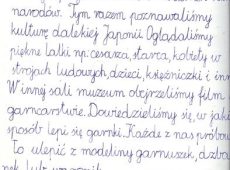 narodów. Tym razem poznawaliśmy
kulturę dalekiej Japonii. Oglądaliśmy
piękne lalki np. cesarza, starca, kobiety w
strojach ludowych, dzieci, księżniczki i inn
W innej sali muzeum obejrzeliśmy film
garncarstwie. Dowiedzieliśmy się, w jaki
sposób lepi się garnki. Każde z nas próbow
to ulepić z modeliny garnuszek, dzba
nek lub